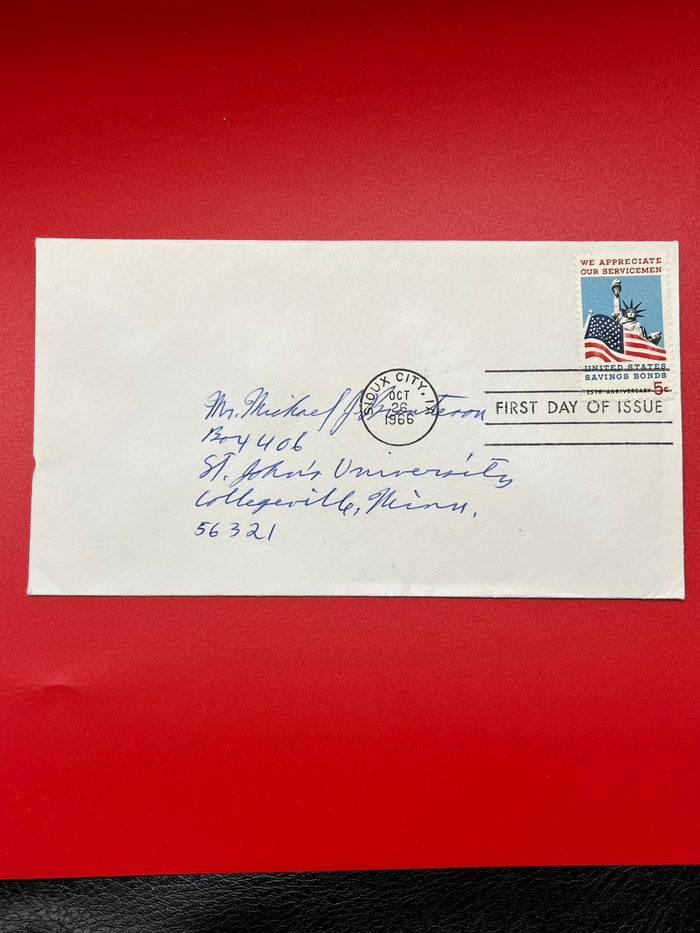 WE APPRECIATE
OUR SERVICEMEN
UNITED STATES
SAVINGS BONDS
25TH ANNIVERSARY 5c
SIOUX CITY, IA
OCT
26
1966
FIRST DAY OF ISSUE
Mr. Michael J.
Box 406
St. John's University
Collegeville, Minn.
56321